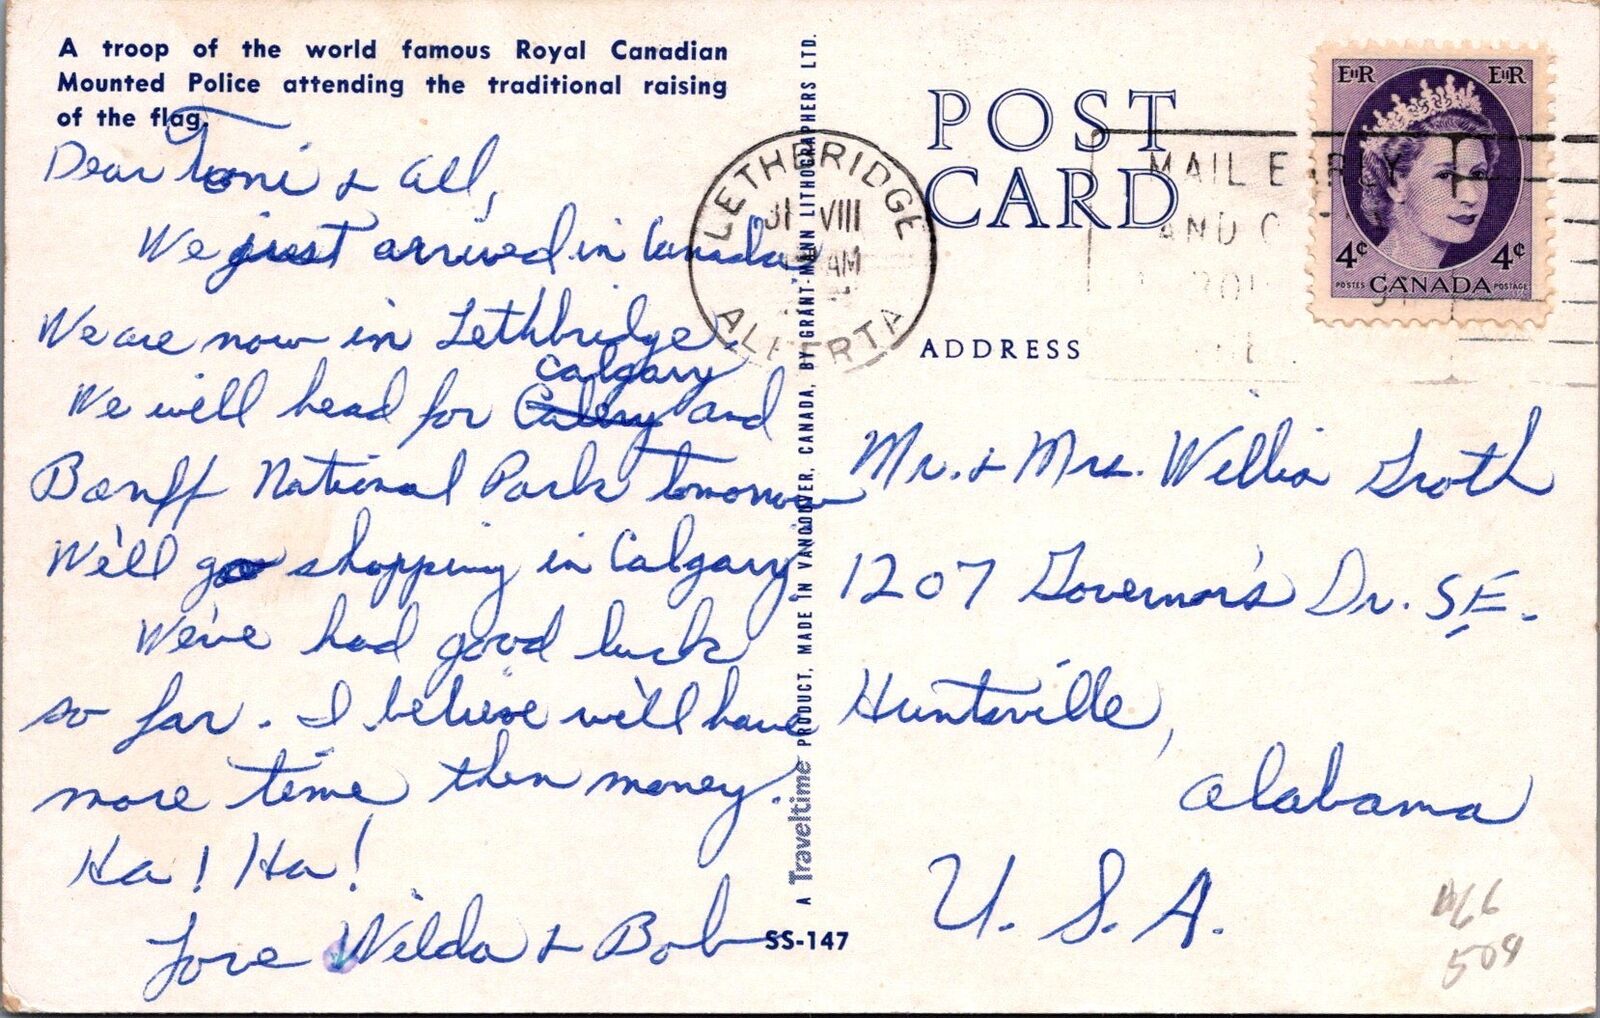 A troop of the world famous Royal Canadian
Mounted Police attending the traditional raising
of the flag.
Dear Toni & all,
We just arrived in Canada
We are now in Lethbridge.
Calgary
We will head for and
Banff National Park tomorrow
We'll go shopping in Calgary.
We've had good luck
so far. I believe we'll have
more time then money.
Ha! Ha!
Love Wilda & Bob
A Traveltime PRODUCT, MADE IN VANCOUVER, CANADA, BY GRANT-MANN LITHOGRAPHERS LTD.
SS-147
LETHBRIDGE
31 VIII
AM
ALBERTA
POST
CARD
MAIL EARLY
AND
EIIR EIIR
4¢ 4¢
POSTES CANADA POSTAGE
ADDRESS
Mr. & Mrs. Willia Groth
1207 Governor's Dr. S.E.
Huntsville,
Alabama
U. S. A.
508